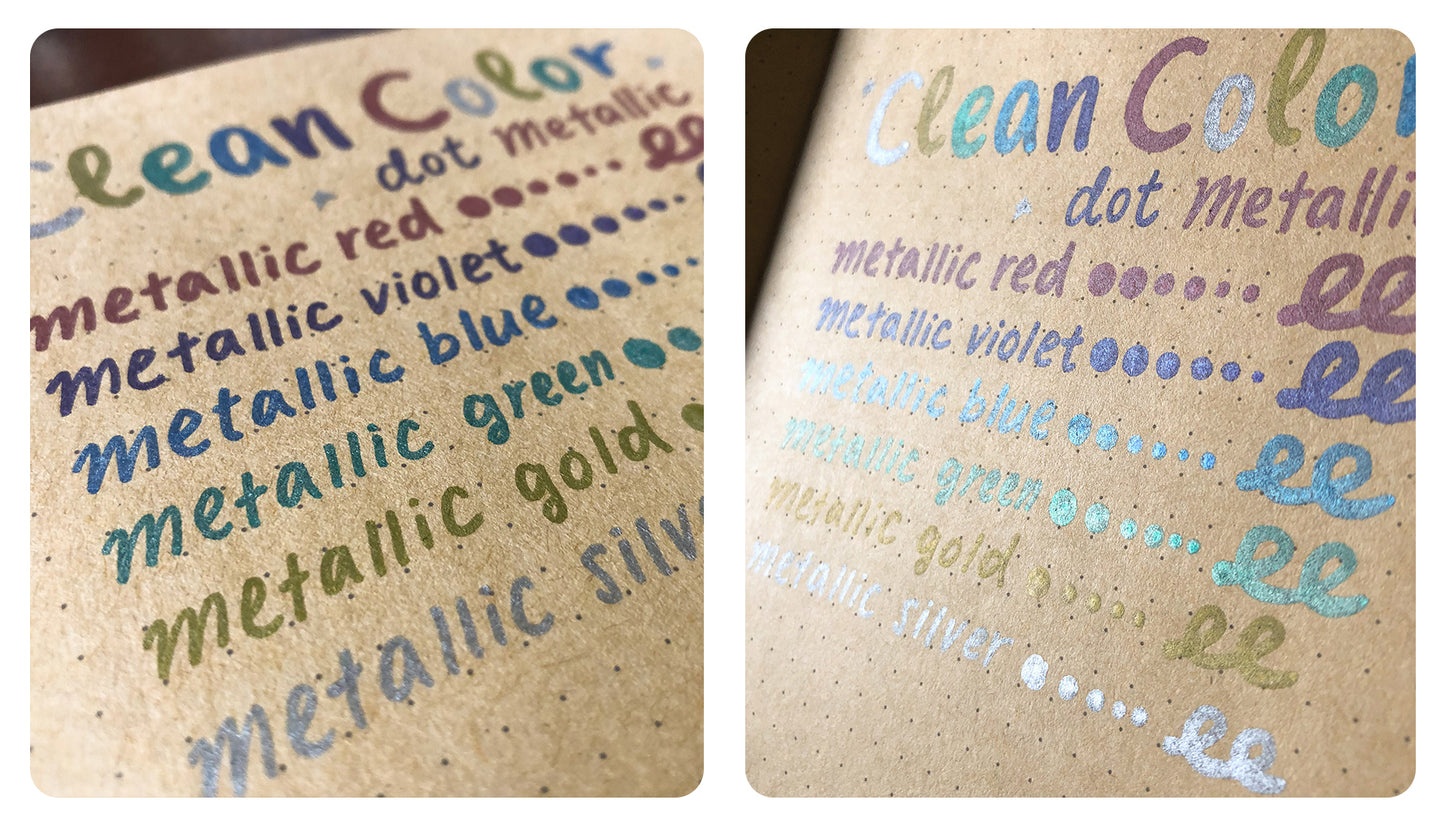 Clean Color
dot metallic
metallic red ee
metallic violet
metallic blue
metallic green
metallic gold
metallic silv
Clean Color
dot metalli
metallic red ee
metallic violet ee
metallic blue ee
metallic green ee
metallic gold ee
metallic silver ee